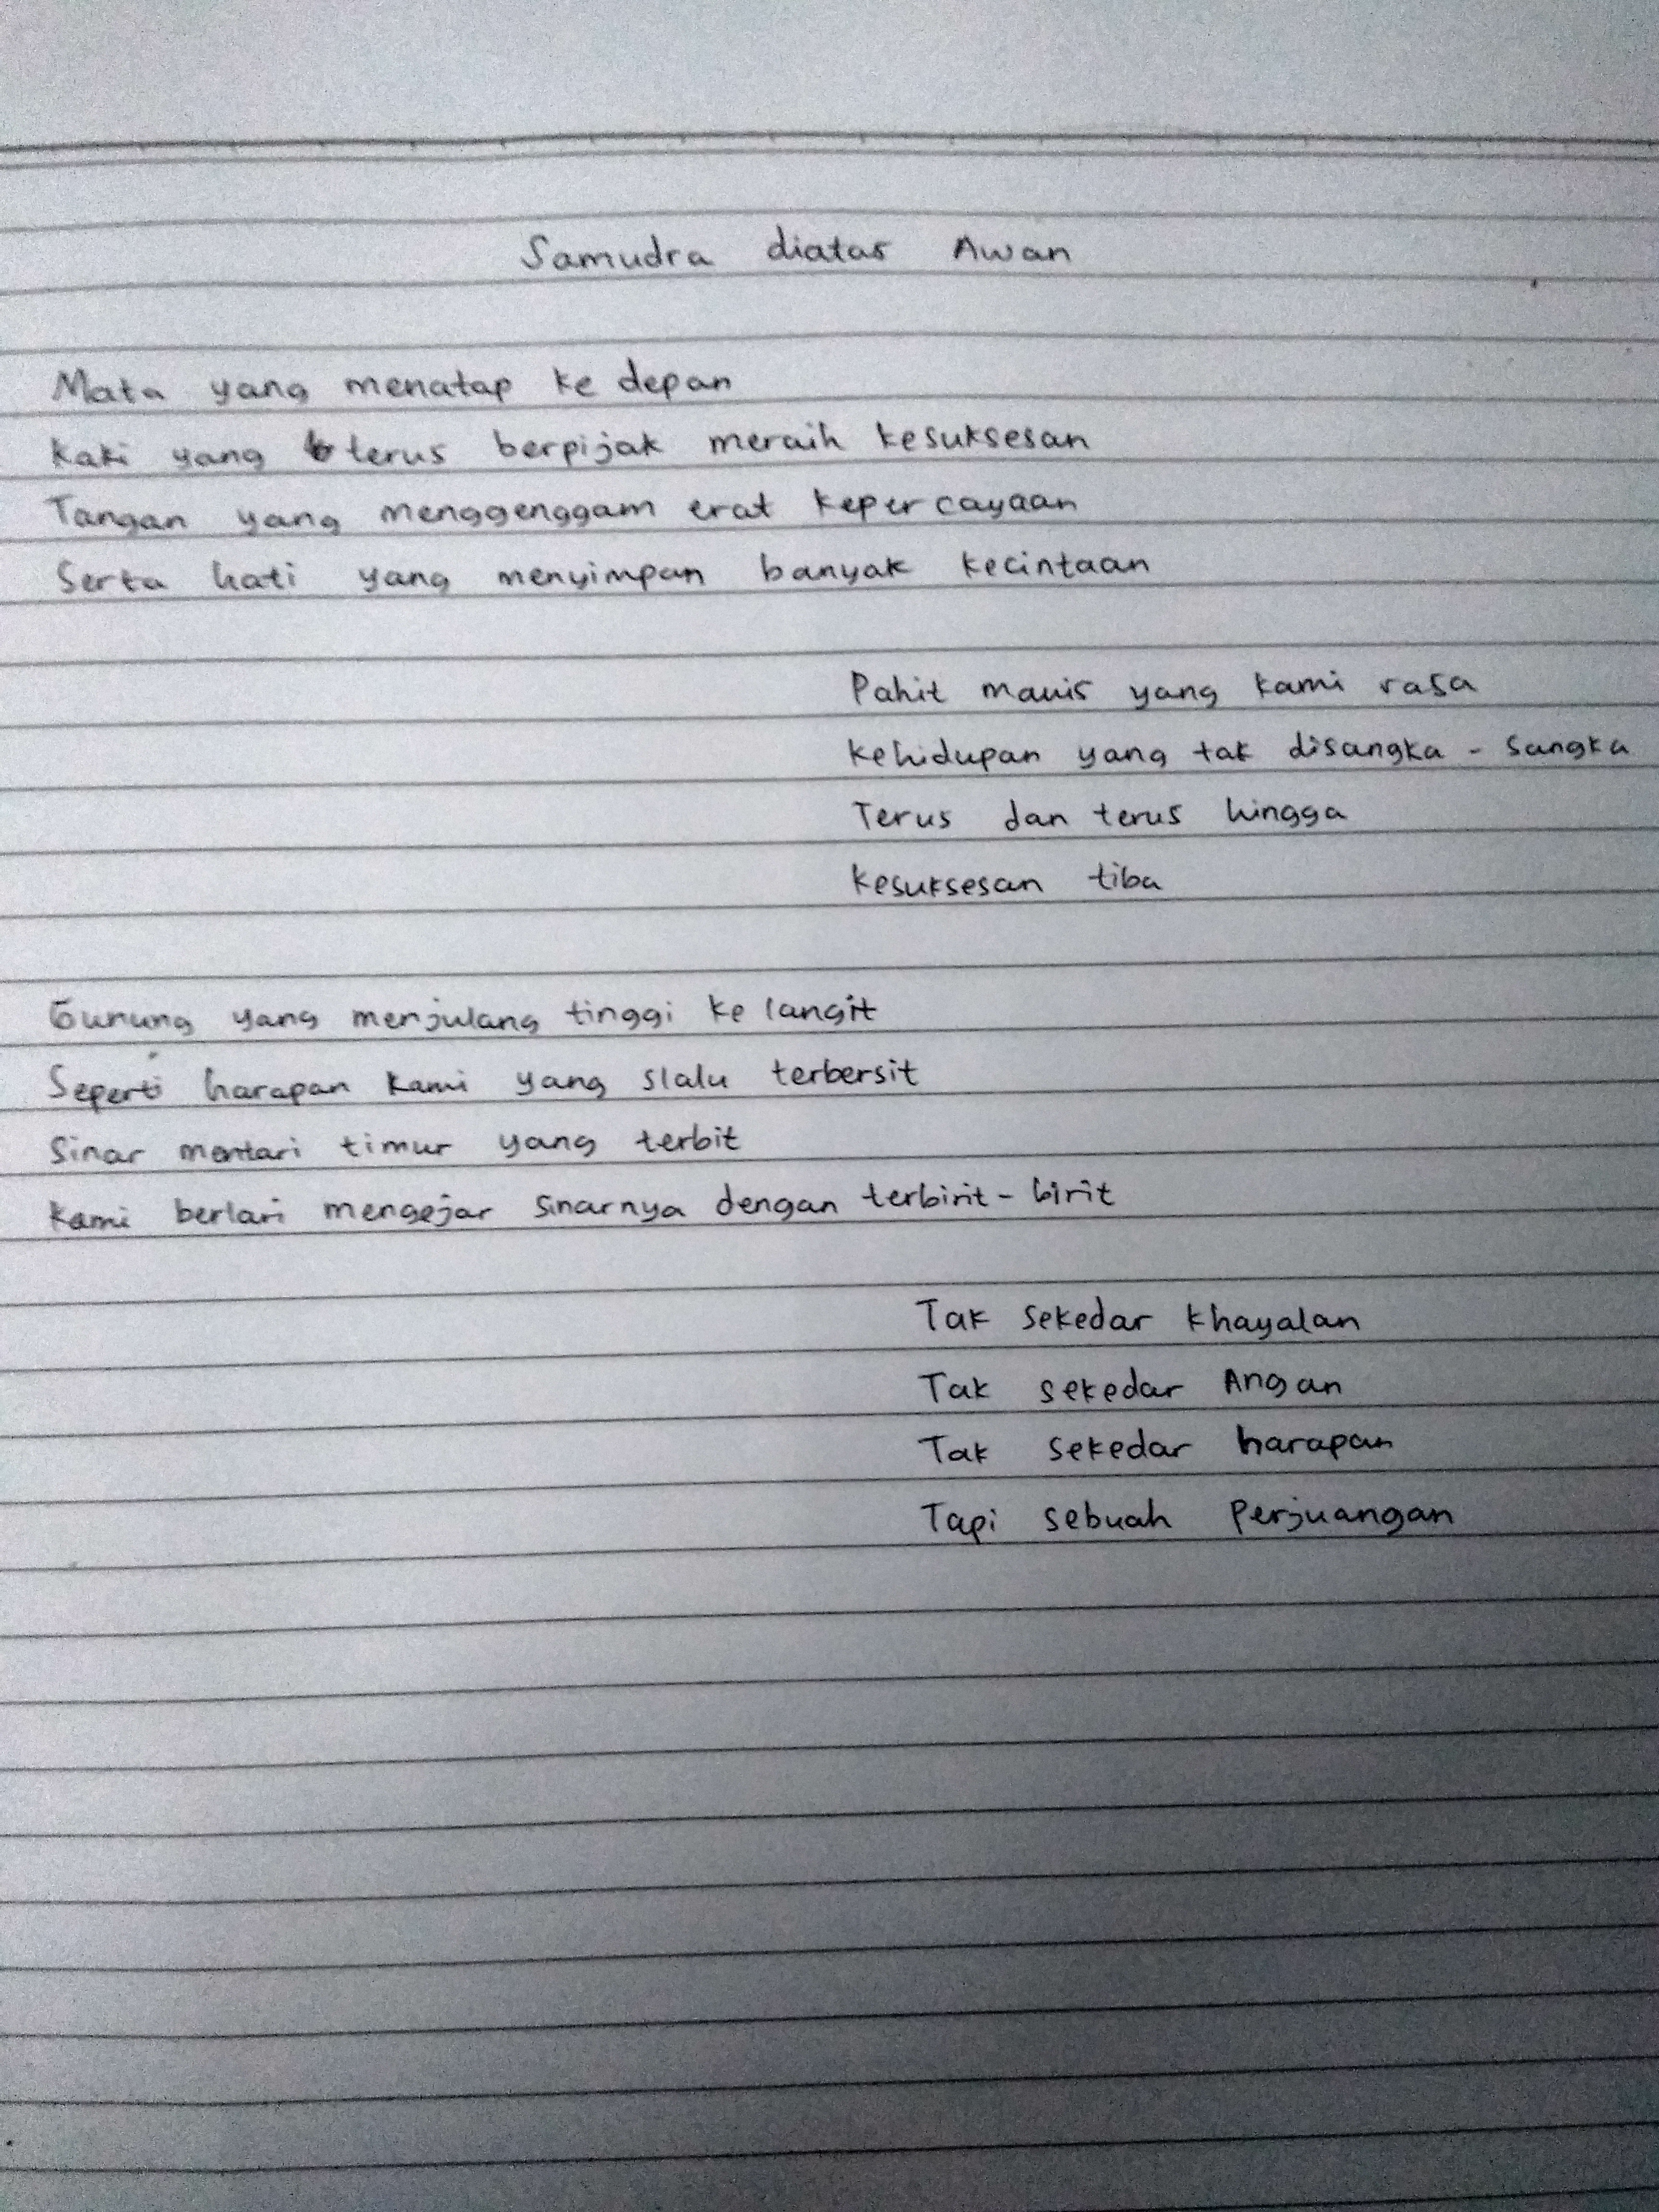 Samudra diatas Awan
Mata yang menatap ke depan
Kaki yang terus berpijak meraih kesuksesan
Tangan yang menggenggam erat kepercayaan
Serta hati yang menyimpan banyak kecintaan
Pahit manis yang kami rasa
Kehidupan yang tak disangka - sangka
Terus dan terus hingga
Kesuksesan tiba
Gunung yang menjulang tinggi ke langit
Seperti harapan kami yang slalu terbersit
Sinar mentari timur yang terbit
Kami berlari mengejar sinarnya dengan terbirit - birit
Tak sekedar khayalan
Tak sekedar Angan
Tak sekedar harapan
Tapi sebuah Perjuangan